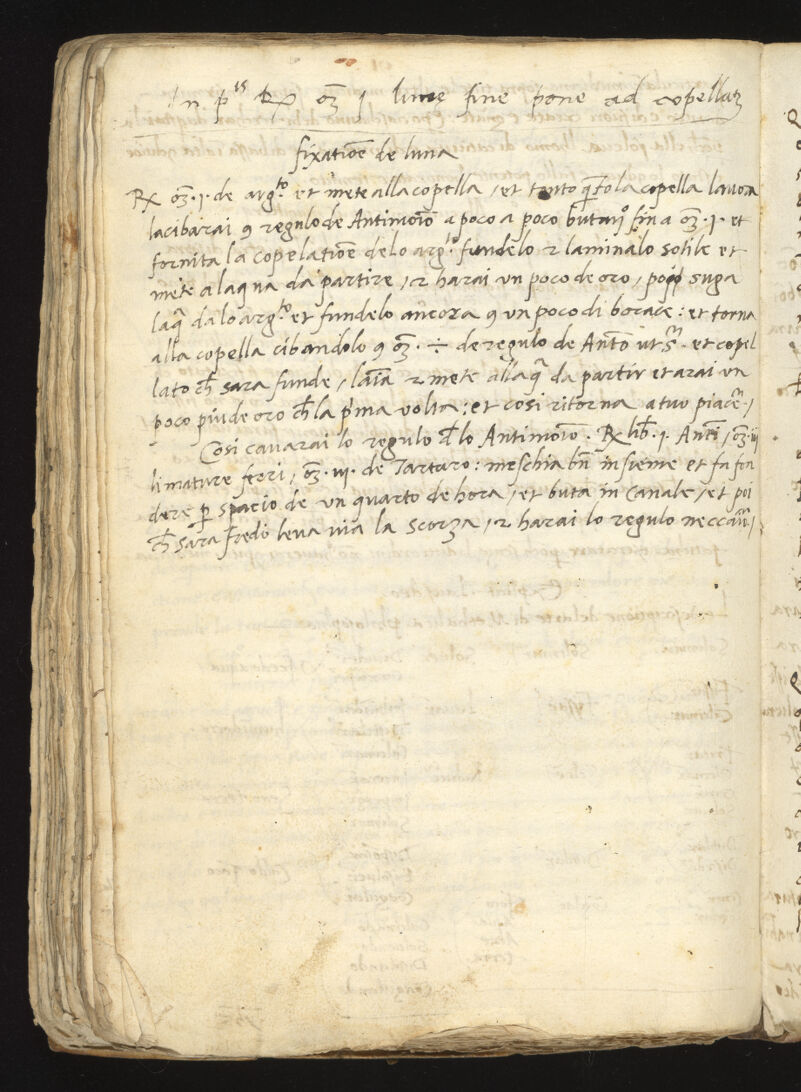 In p^is Rx oz j lunę fine pone ad copellaz
fixatioē de luna
Rx oz · i · de arg^to et mete alla copella / et tanto q̄to la copella lavora
la cibarai 9 regulo de Antimoīo a poco a poco butan^o fin a oz · j · et
fornita la copelatioē de lo arg^to fundelo & laminalo sotile et
mete a laqua da partire / & harai un poco de oro / poi suga
laq̄ da lo arg^to et fundelo ancora 9 un poco di borace : et torna
alla copella cibandolo 9 oz · ÷ de regulo de Anto ut s^a · et copel
lato ch̄ sara funde / laīa & mete allaq̄ da partir et arai un
poco piu de oro ch̄ la p'ma volta : et cosi ritorna a tuo piacē /
Cosi cavarai lo regulo d̄lo Antimoīo · Rx lib̄ · i · Anti / oz · iii
limature ferri / oz · iii · de Tartaro : meschia bn̄ insieme et fa fon
dere p̄ spacio de un quarto de hora / et buta in canale / et poi
ch̄ sara fredo leva via la scorza / & harai lo regulo